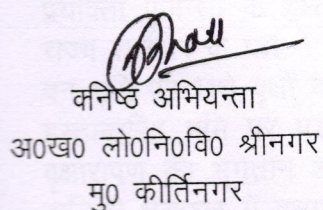 कनिष्ठ अभियन्ता
अ0ख0 लो0नि0वि0 श्रीनगर
मु0 कीर्तिनगर